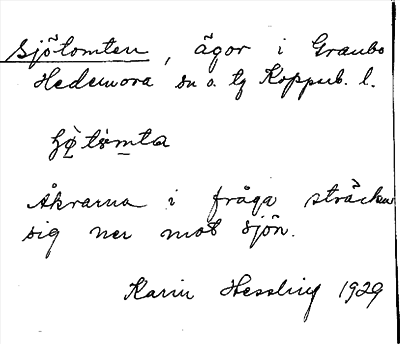 Sjötomten, ägor i Graubo
Hedemora sn o. tg Koppub. l.
Åkrarna i fråga sträcka
sig ner mot sjön.
Karin Hessling 1929